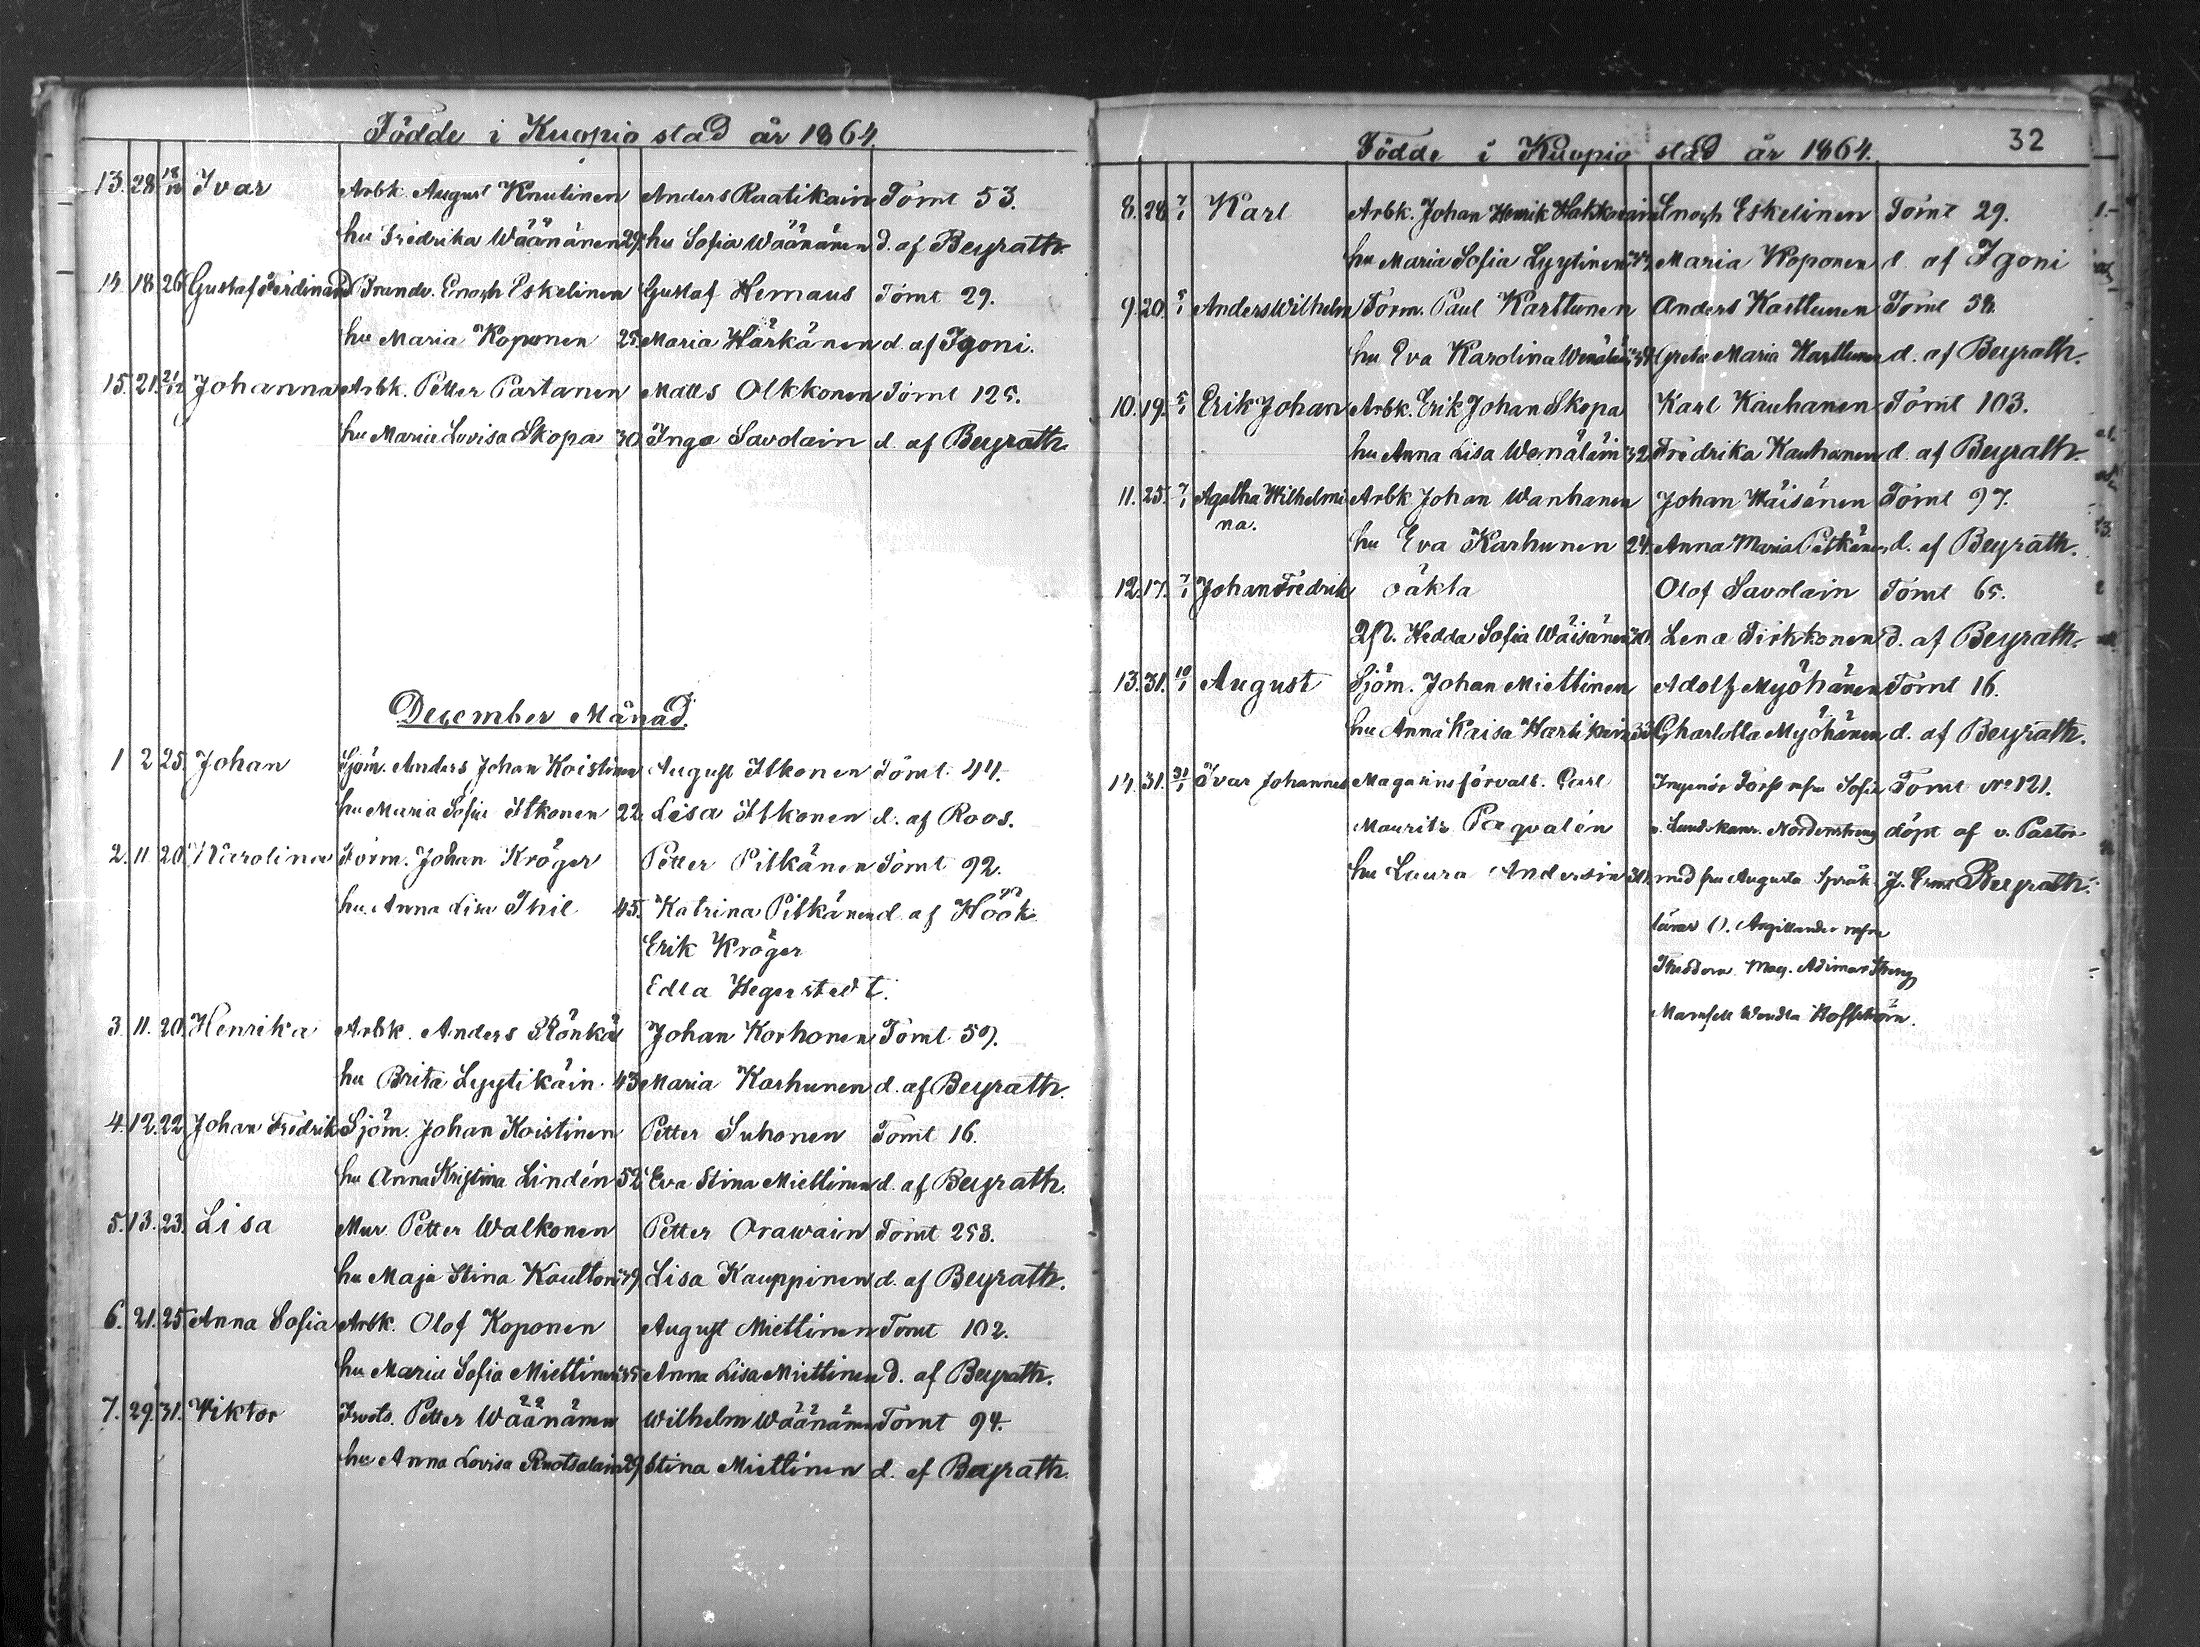 Födde i Kuopio stad år 1864.
13. 28. 18/12 Ivar Arbk. August Knutinen Anders Raatikain Tomt 53.
hu Fredrika Wäänänen 29. hu Sofia Wäänänen d. af Beyrath.
14. 18. 26. Gustaf Ferdinand Enoch Eskelinen Gustaf Hemaus Tomt 29.
hu Maria Koponen 25. Maria Härkänen d. af Igoni.
15. 21. Johanna Arbk. Petter Partanen Matts Olkkonen Tomt 125.
hu Maria Lovisa Skopa 30. Inga Savolain d. af Beyrath.
December Månad.
1 2 25. Johan Sjöm. Anders Johan Koistinen August Itkonen Tomt 44.
hu Maria Sofia Itkonen 22. Lisa Itkonen d. af Roos.
2. 11 20. Karolina Form. Johan Kröger Petter Pitkänen Tomt 92.
hu Anna Lisa Thil 45. Katrina Pitkänen d. af Höök
Erik Kröger
Edla Hegerstedt.
3. 11. 20. Henrika Arbk. Anders Rönkä Johan Korhonen Tomt 59.
hu Brita Lyytikäin. 43 Maria Karhunen d. af Beyrath.
4. 12. 22. Johan Fredrik Sjöm. Johan Koistinen Petter Suhonen Tomt 16.
hu Anna Kristina Lindén 52. Eva Stina Miettinen d. af Beyrath.
5. 13. 23. Lisa Mur. Petter Walkonen Petter Orawain Tomt 253.
hu Maja Stina Lisa Kauppinen d. af Beyrath.
6. 21. 25 Anna Sofia Arbk. Olof Koponen August Miettinen Tomt 102.
hu Maria Sofia Miettinen Anna Lisa Miettinen d. af Beyrath.
7. 29. 31. Wiktor Petter Wäänänen Wilhelm Wäänänen Tomt 94.
hu Anna Lovisa Ruotsalain 29. Stina Miettinen d. af Beyrath.
Födde i Kuopio stad år 1864. 32
8. 28. 7/1 Karl Arbk. Johan Henrik Hakkarain Enoch Eskelinen Tomt 29.
hu Maria Sofia Lyytinen Maria Koponen d. af Igoni
9. 20. Anders Wilhelm Form. Paul Karttunen Anders Karttunen Tomt 58.
hu Eva Karolina Greta Maria Karttunen d. af Beyrath.
10. 19. 5/1 Erik Johan Arbk. Erik Johan Skopa Karl Kauhanen Tomt 103.
hu Anna Lisa Wenäläin 32. Fredrika Kauhanen d. af Beyrath.
11. 25. 7/1 Agatha Wilhelmi Arbk Johan Wanhanen Johan Wäisänen Tomt 97.
na. hu Eva Karhunen 24. Anna Maria Pitkänen d. af Beyrath.
12. 17. 7/1 Johan Fredrik oäkta Olof Savolain Tomt 65.
Hedda Sofia Wäisänen Lena Tirkkonen d. af Beyrath.
13. 31. 10/1 August Sjöm. Johan Miettinen Adolf Myöhänen Tomt 16.
hu Anna Kaisa Hartikain 33 Charlotta Myöhänen d. af Beyrath.
14. 31. 31/1 Ivar Johannes Magasinsförvalt. Carl Ingeniör Sofia Tomt No 121.
Mauritz Paqvalén Nordenstreng döpt af v. Pastor
hu Laura Andersin med fru Augusta Språk J. Ernst Beyrath.
lärar O. Argillander
Theodora Mag.
Mamsell Wendla Hoffrén.